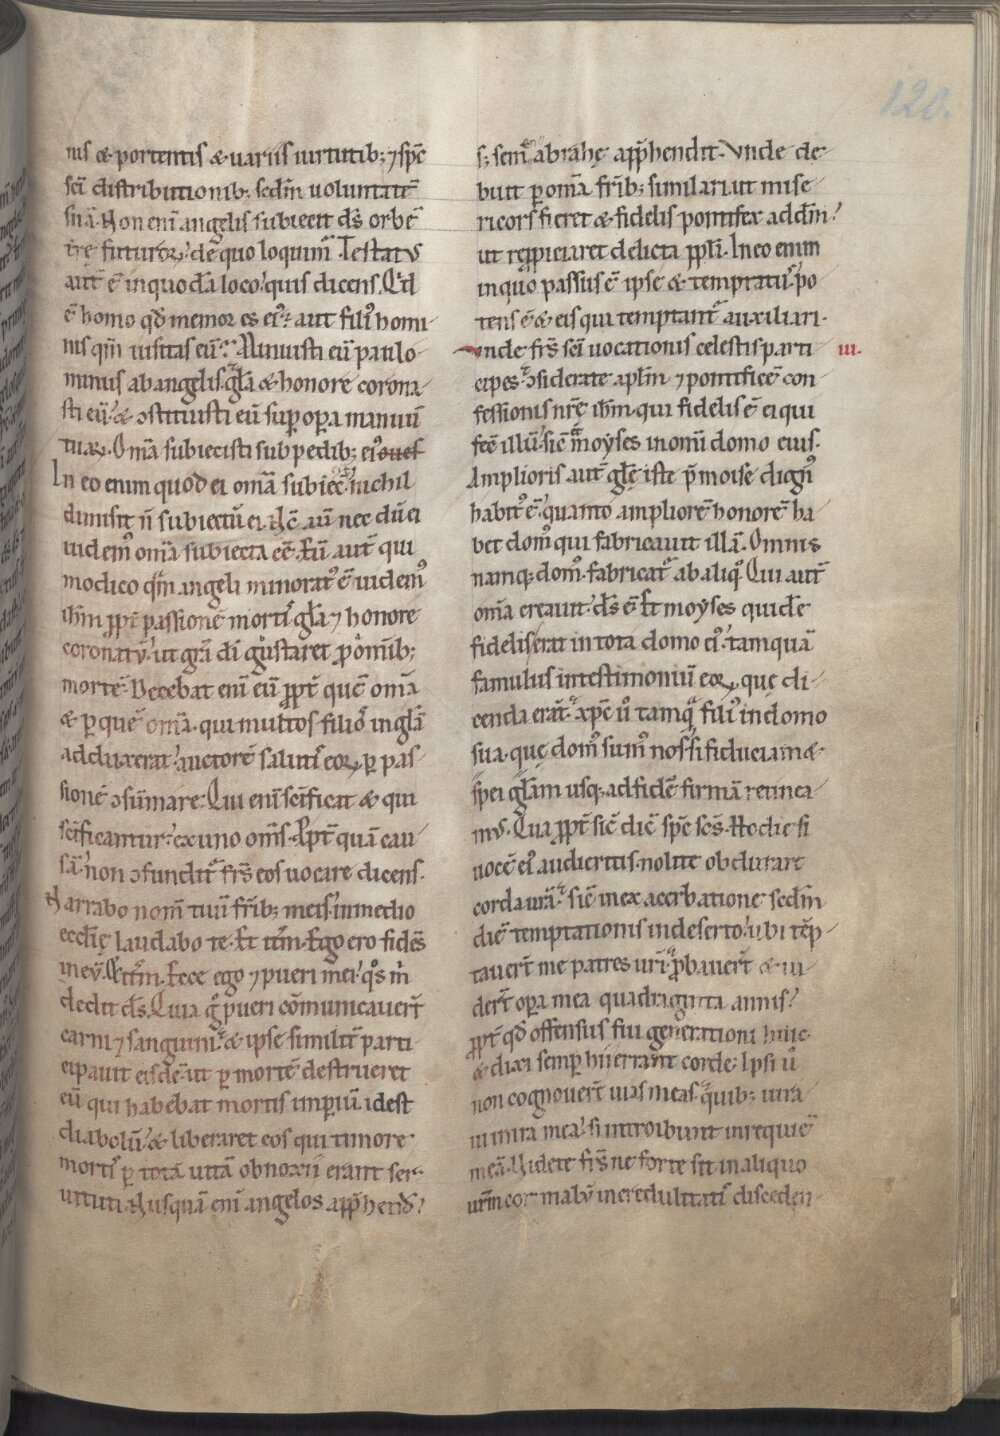 120.
nis & portentis & uariis uirtutib; ⁊ sp̄c
sc̄i distributionib; sedm̄ uoluntatē
suā. Non eni᷑ angelis subiecit ds̄ orbē
tr̄e futurū, de quo loquim᷑. Testatꝰ
aut̄ ē in quodā loco quis dicens. Qꝉd
ē homo qd̄ memor es eiꝰ: aut filiꝰ homi
nis qm̄ uisitas eū? Minuisti eū paulo
minus ab angelis. gl̄a & honore corona
sti eū: & ↄstituisti eū suꝑ opa manuū
tuaꝝ. Om̄a subiecisti sub pedib; eiꝰ oues
In eo enim quod ei om̄a subiec̄. nichil
dimisit n̄ subiectū ei. Nc̄ aū nec dū ei
uidemꝰ om̄a subiecta eē. Eū aut̄ qui
modico qm̄ angeli minoratꝰ ē uidemꝰ
ihm̄ ꝓpt̄ passionē mortis gl̄a ⁊ honore
coronatū: ut gr̄a di᷑ gustaret ꝓ omīb;
mortē. Decebat eni᷑ eū ꝓpt̄ quē om̄a
& ꝑ quē om̄a. qui multos filios in gl̄ā
adduxerat: auctorē salutis eoꝝ ꝑ pas
sionē ↄsūmare. Qui eni᷑ sc̄ificat & qui
sc̄ificantur: ex uno om̄s. Ꝓpt̄ quā cau
sā: non ↄfundit᷑ fr̄s eos uocare dicens.
Narrabo nom̄ tuū fr̄ib; meis: in medio
eccl̄ię laudabo te. Et itm̄. Ego ero fidēs
in eū. Et itm̄. Ecce ego ⁊ pueri mei: qͦs m̄
dedit ds̄. Quia g̊ pueri cōmunicauer̄t
carni ⁊ sanguini: & ipse similit̄ parti
cipauit eisdē: ut ꝑ mortē destrueret
eū qui habebat mortis impiū. idest
diabolū: & liberaret eos qui timore
mortis ꝑ totā uitā obnoxii erant ser
uituti. Nusquā eni᷑ angelos app̄hend̄:
s; sem̄ abrahę app̄hendit. Vnde de
buit ꝑ om̄a fr̄ib; similari. ut mise
ricors fieret & fidelis pontifex ad dm̄:
ut reppiciaret delicta ppl̄i. In eo enim
in quo passus ē ipse & temptatus: po
tens ē & eis qui temptant᷑ auxiliari.
Vnde fr̄s sc̄i uocationis celestis parti
III.
cipes: ↄsiderate aplm̄ ⁊ pontificē con
fessionis nr̄ę ihm̄. qui fidelis ē ei qui
fec̄ illū: sic̄ & moyses in omni domo eius.
Amplioris aut̄ gl̄ę iste p̄ moise dignꝰ
habitꝰ ē: quanto ampliorē honorē ha
bet domꝰ qui fabricauit illā. Omnis
namq; domꝰ fabricat᷑ ab aliqͦ. Qui aut̄
om̄a creauit: ds̄ ē. Et moyses quidē
fidelis erat in tota domo eiꝰ: tamquā
famulus in testimoniū eoꝝ quę di
cenda erāt: xp̄c ū tamqͣ filiꝰ in domo
sua. quę domꝰ sumꝰ nos. si fiduciam &
spei gl̄am usq; ad fidē firmā retinea
mꝰ. Qua ꝓpt̄ sic̄ dic̄ sp̄c sc̄s. Hodie si
uocē eiꝰ audieritis: nolite obdurare
corda ur̄a: sic̄ in exacerbatione sedm̄
diē temptationis in deserto: ubi tēp
tauer̄t me patres ur̄i. ꝓbauer̄t & ui
der̄t opa mea quadraginta annis:
ꝓpt̄ qd̄ offensus fui generationi huic
& dixi semp hii errant corde. Ipsi ū
non cognouer̄t uias meas. quib; iura
ui in ira mea: si introibunt in requiē
meā. Videte fr̄s ne forte sit in aliquo
ur̄m cor malū incredulitatis disceden